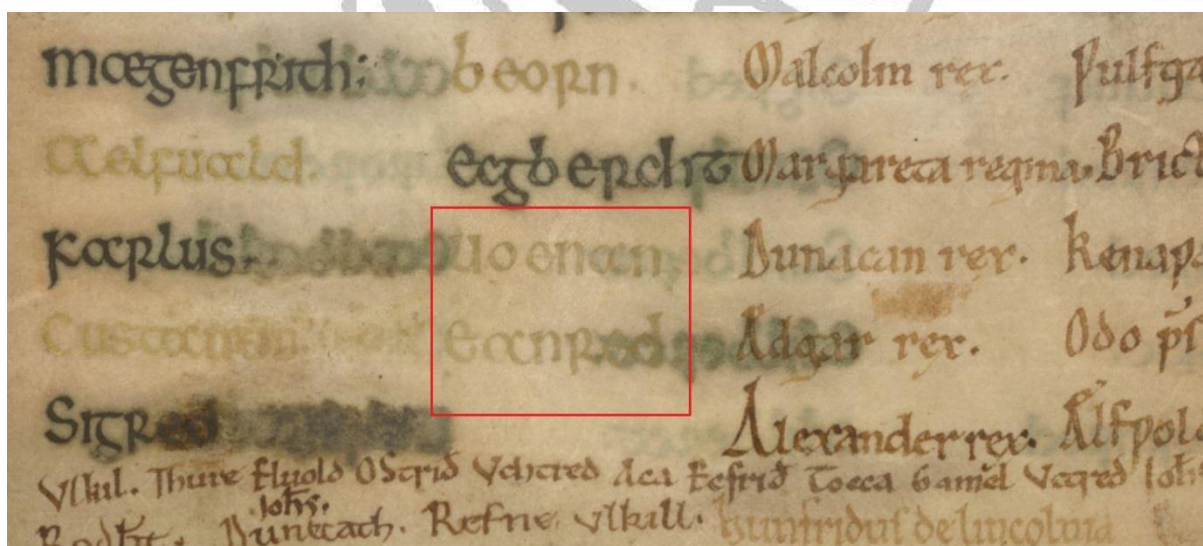 mægenfrith: beorn. Malcolm rex.
Aelfuald. ecgbercht Margareta regina. Brict
karlus. Uoenan. Dunacan rex. Kenapa
Custantin Eanred Adgar rex. Odo p̄r
Sigred Alexander rex. Alfpol
Vlkil. Thure Eluold Ostriđ Vchtred Aca Ecfriđ Tocca Gamel Vctred Ioh
Iohs.
Dunecach. Refne. Vlkill. hunfridus de lincolnia